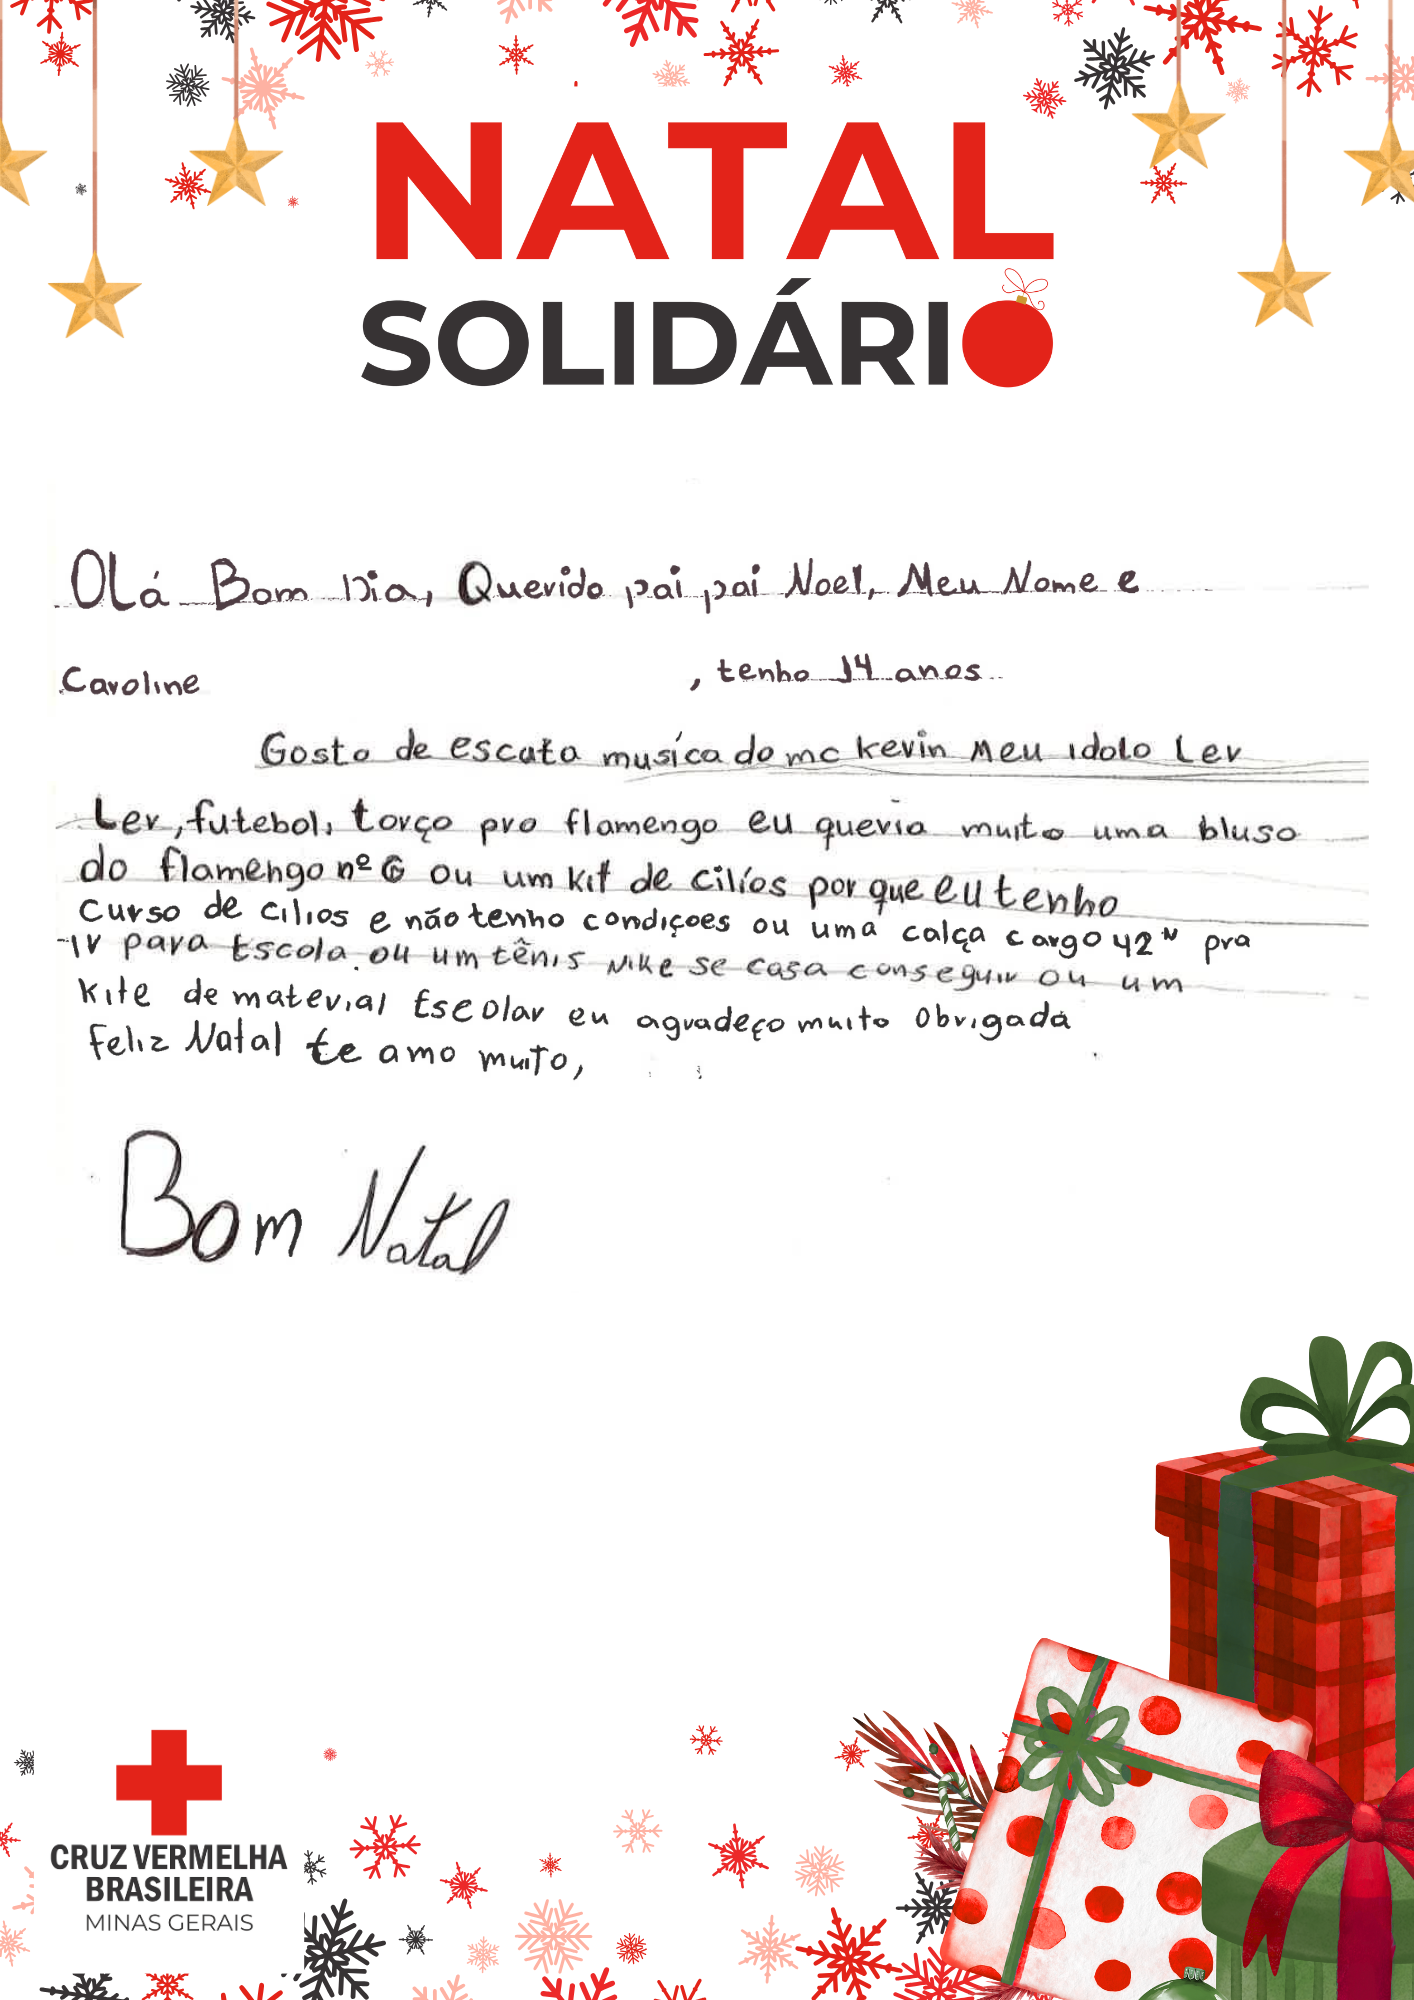 NATAL
SOLIDÁRIO
Olá Bom Dia, Querido pai pai Noel, Meu Nome e
Caroline , tenho 14 anos
Gosto de escuta musíca do mc kevin Meu idolo Ler
Ler, futebol, torço pro flamengo eu queria muito uma bluso
do flamengo nº G ou um kit de cilíos por que eu tenho
Curso de cilios e não tenho condiçoes ou uma calça cargo 42 pra
ir para Escola. ou um tênis Nike se casa conseguir ou um
kite de material Escolar eu agradeço muito Obrigada
Feliz Natal te amo muito,
Bom Natal
CRUZ VERMELHA
BRASILEIRA
MINAS GERAIS